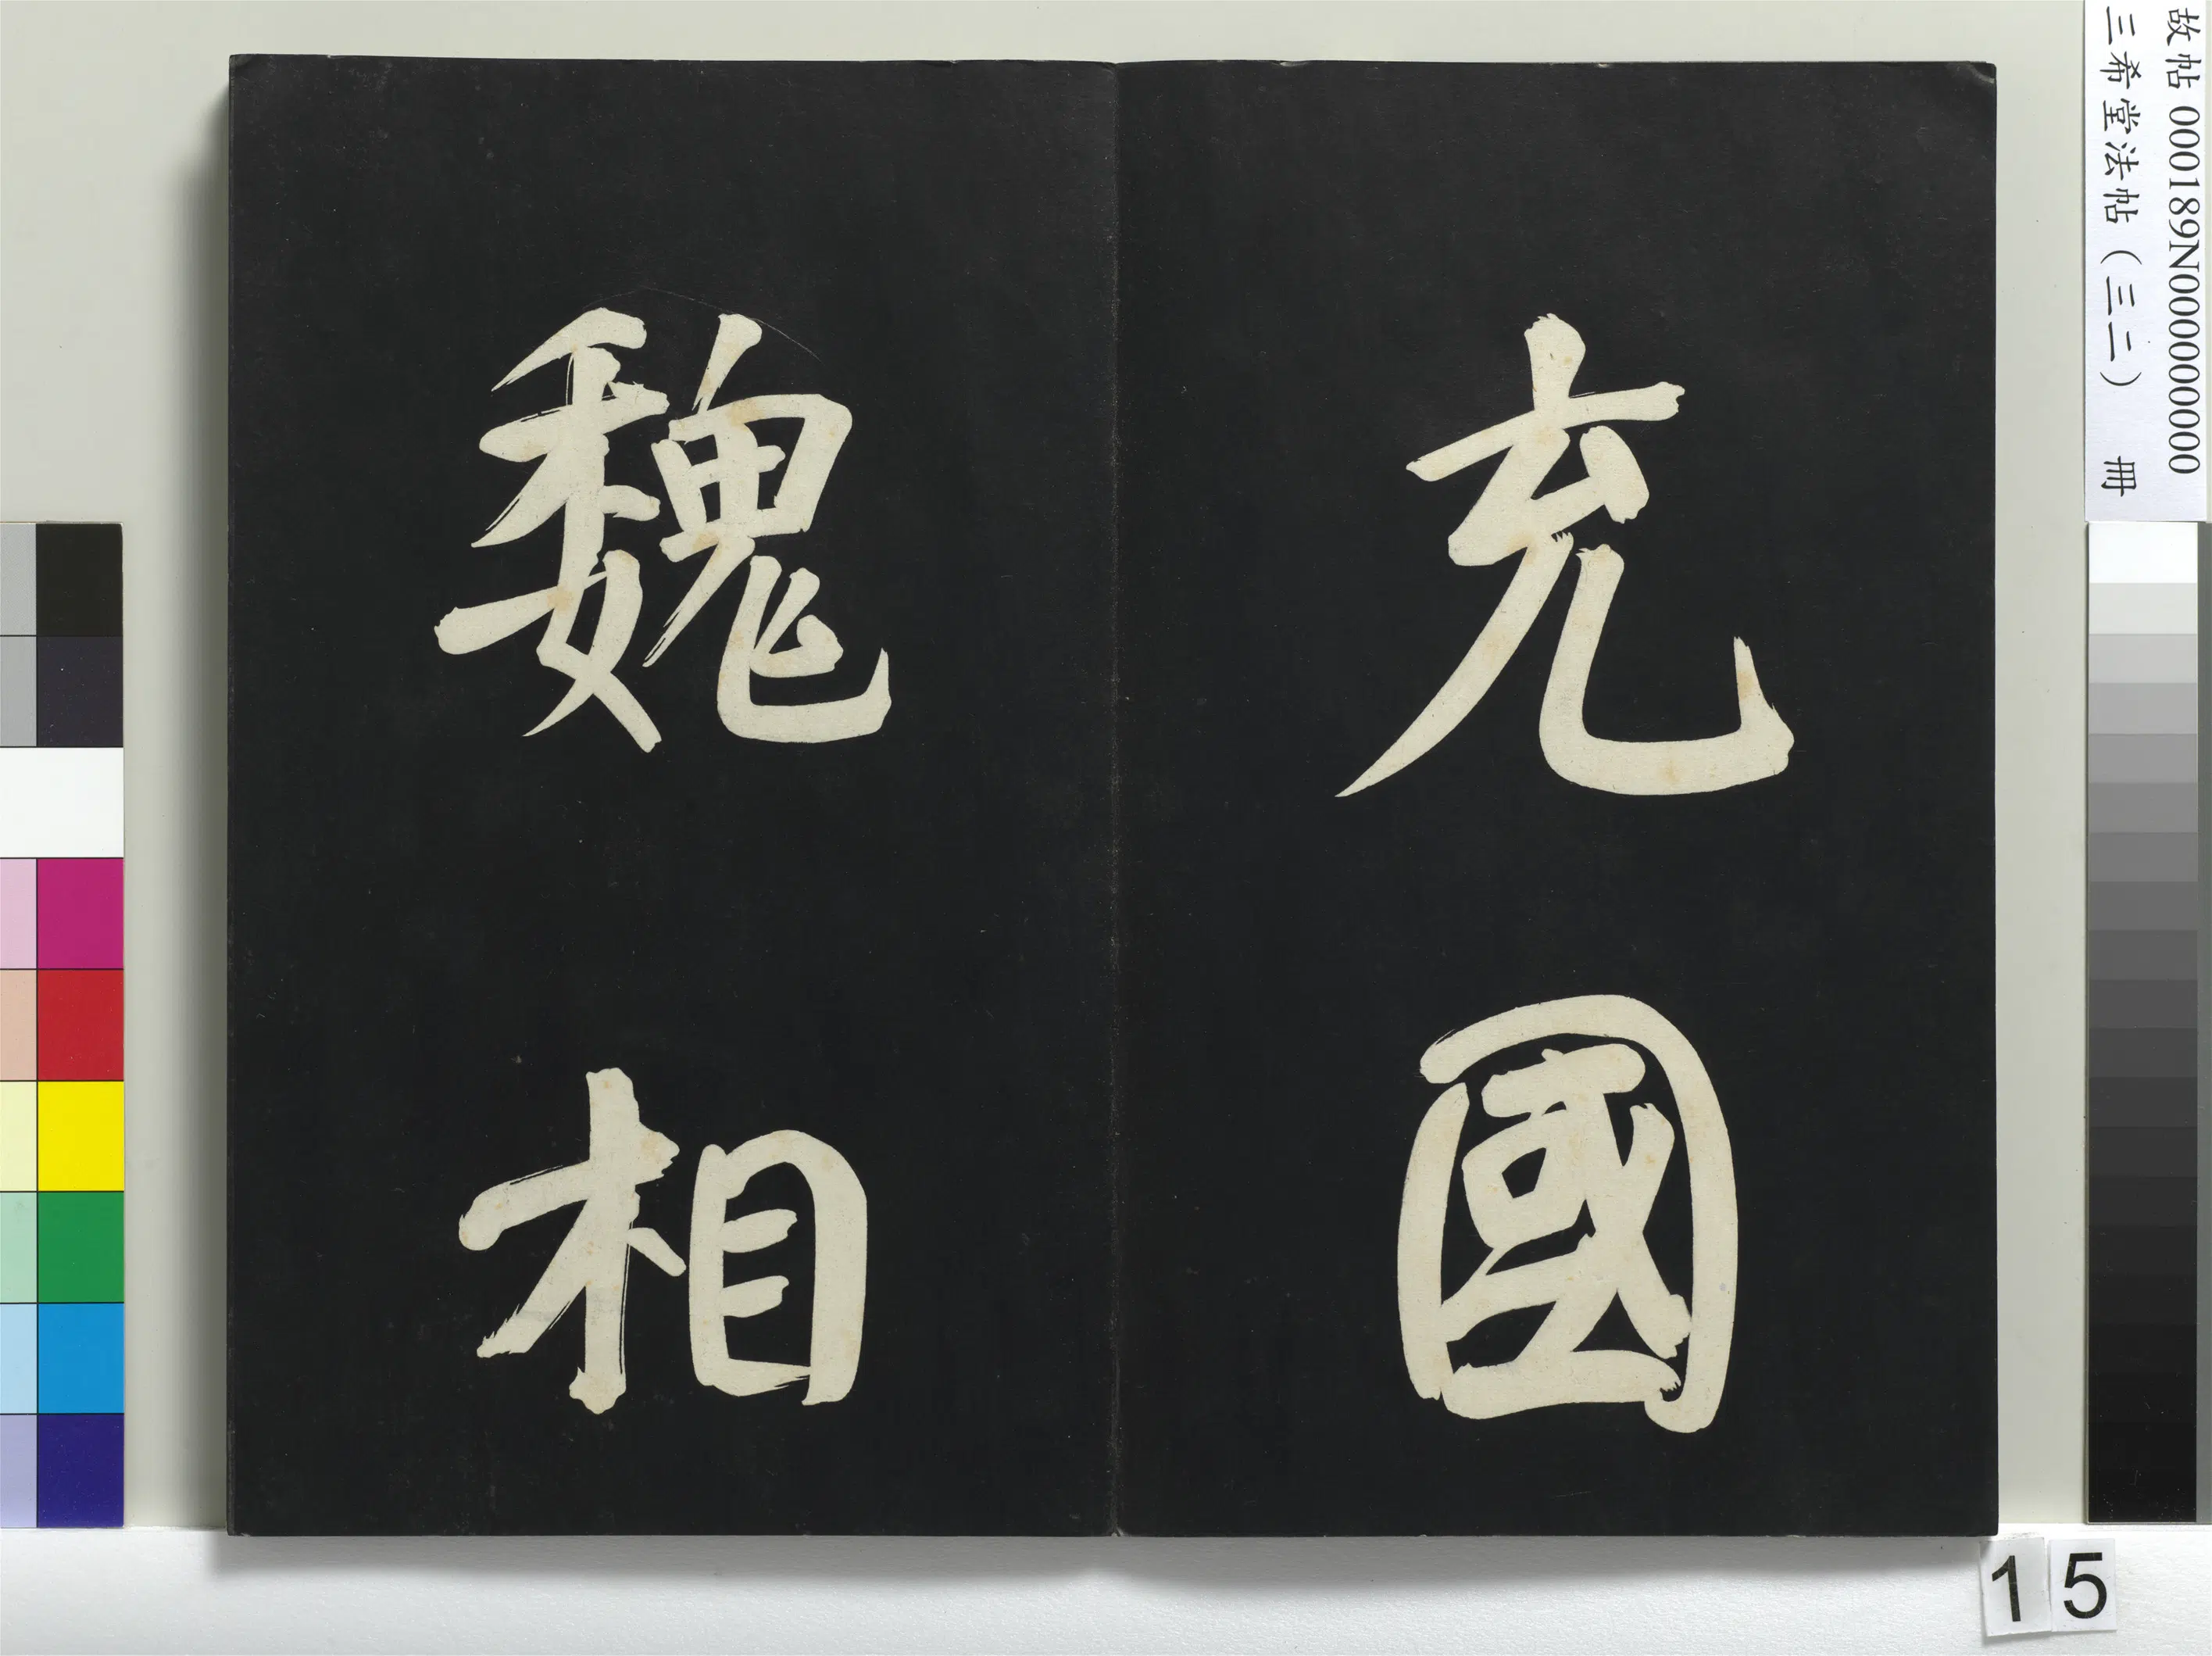 充國
魏相
故帖 000189N000000000
三希堂法帖（三二） 冊
15